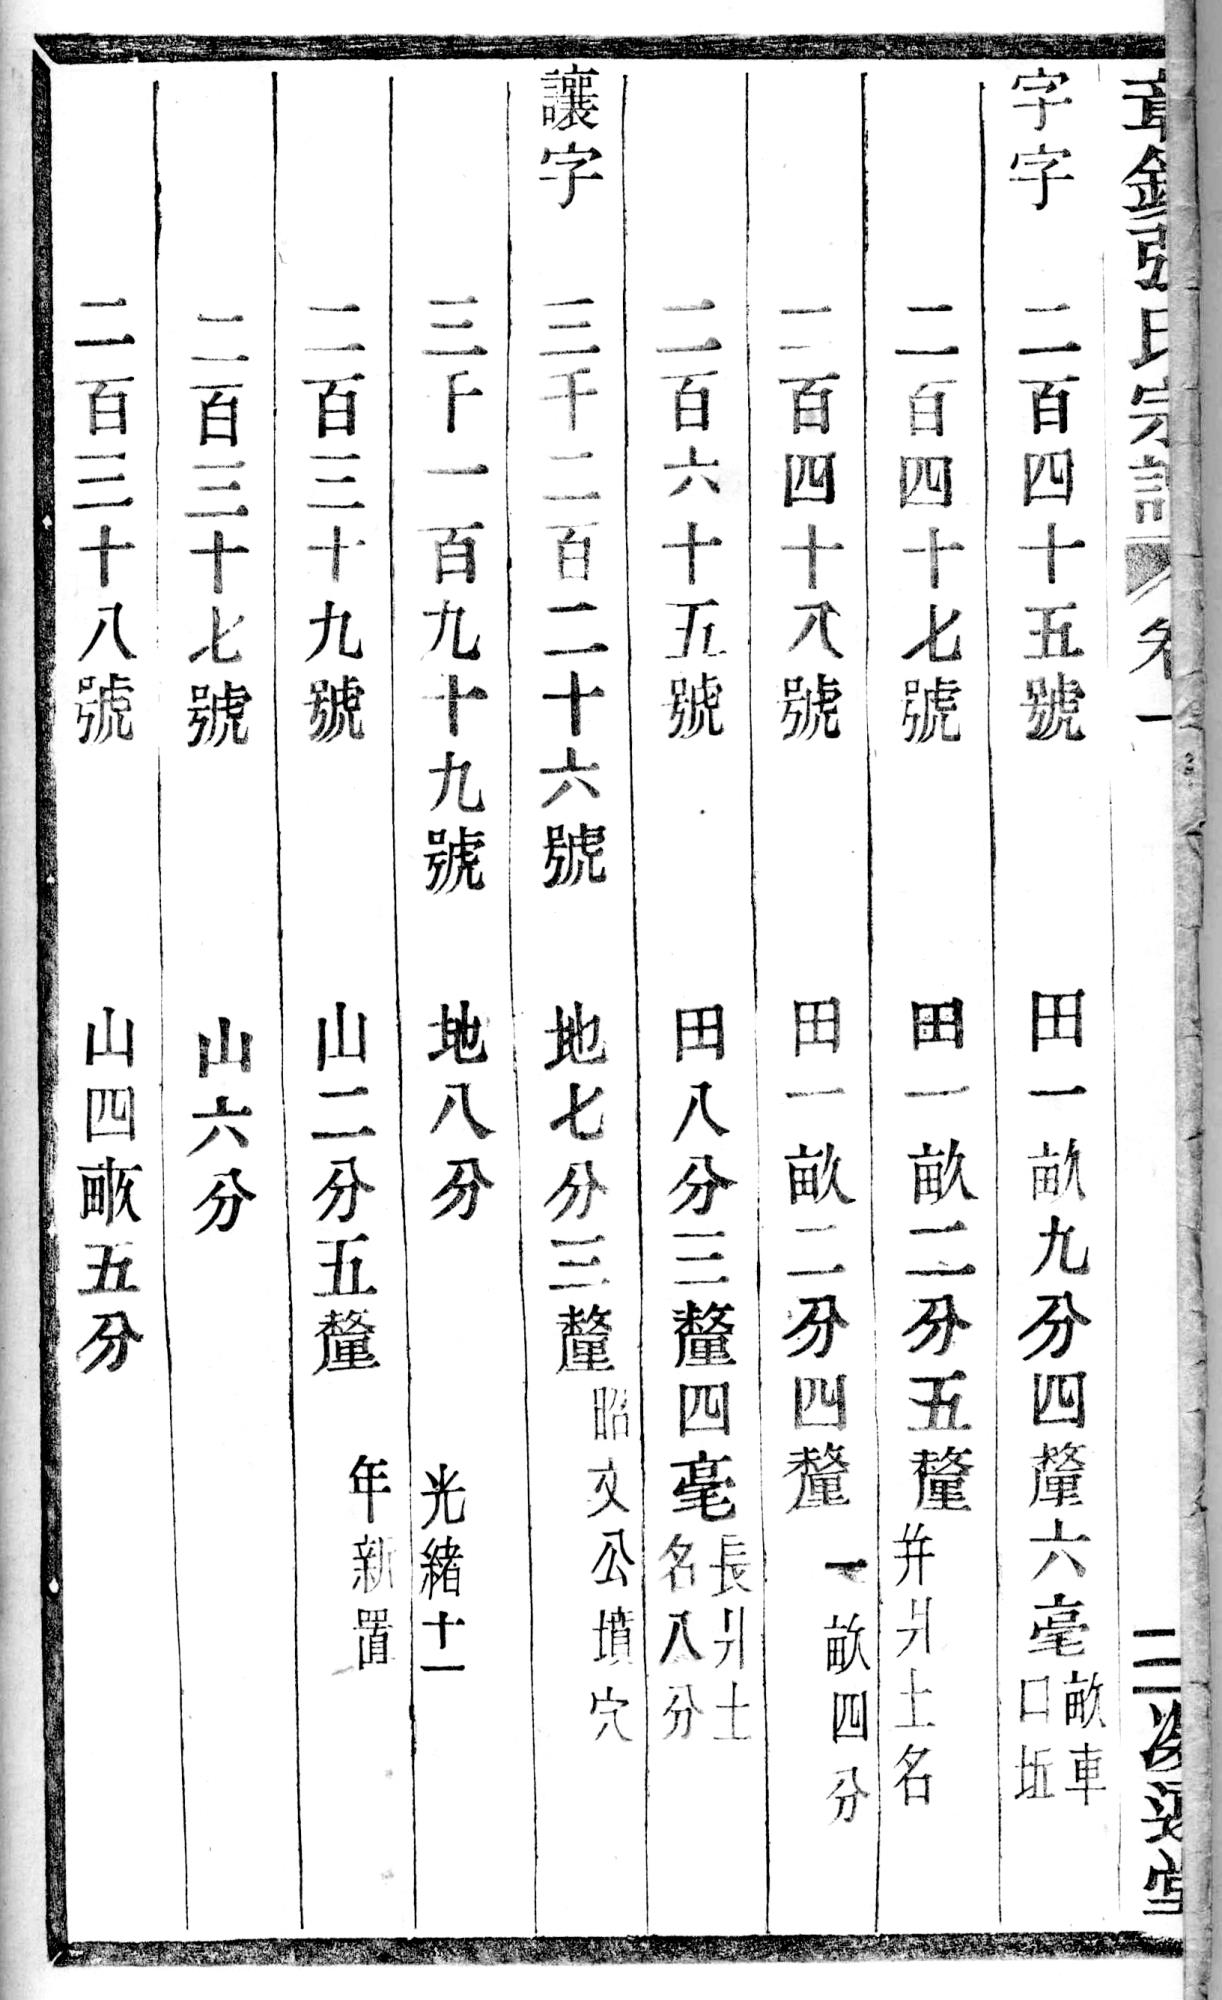 章鎮張氏宗譜 卷一 二 凝遠堂
字字 二百四十五號 田一畝九分四釐六毫 畝車口坵
二百四十七號 田一畝二分五釐 幷爿土名
二百四十八號 田一畝二分四釐 一畝四分
二百六十五號 田八分三釐四毫 長爿土名八分
讓字 三千二百二十六號 地七分三釐 昭文公墳穴
三千一百九十九號 地八分 光緒十一年新置
二百三十九號 山二分五釐
二百三十七號 山六分
二百三十八號 山四畝五分